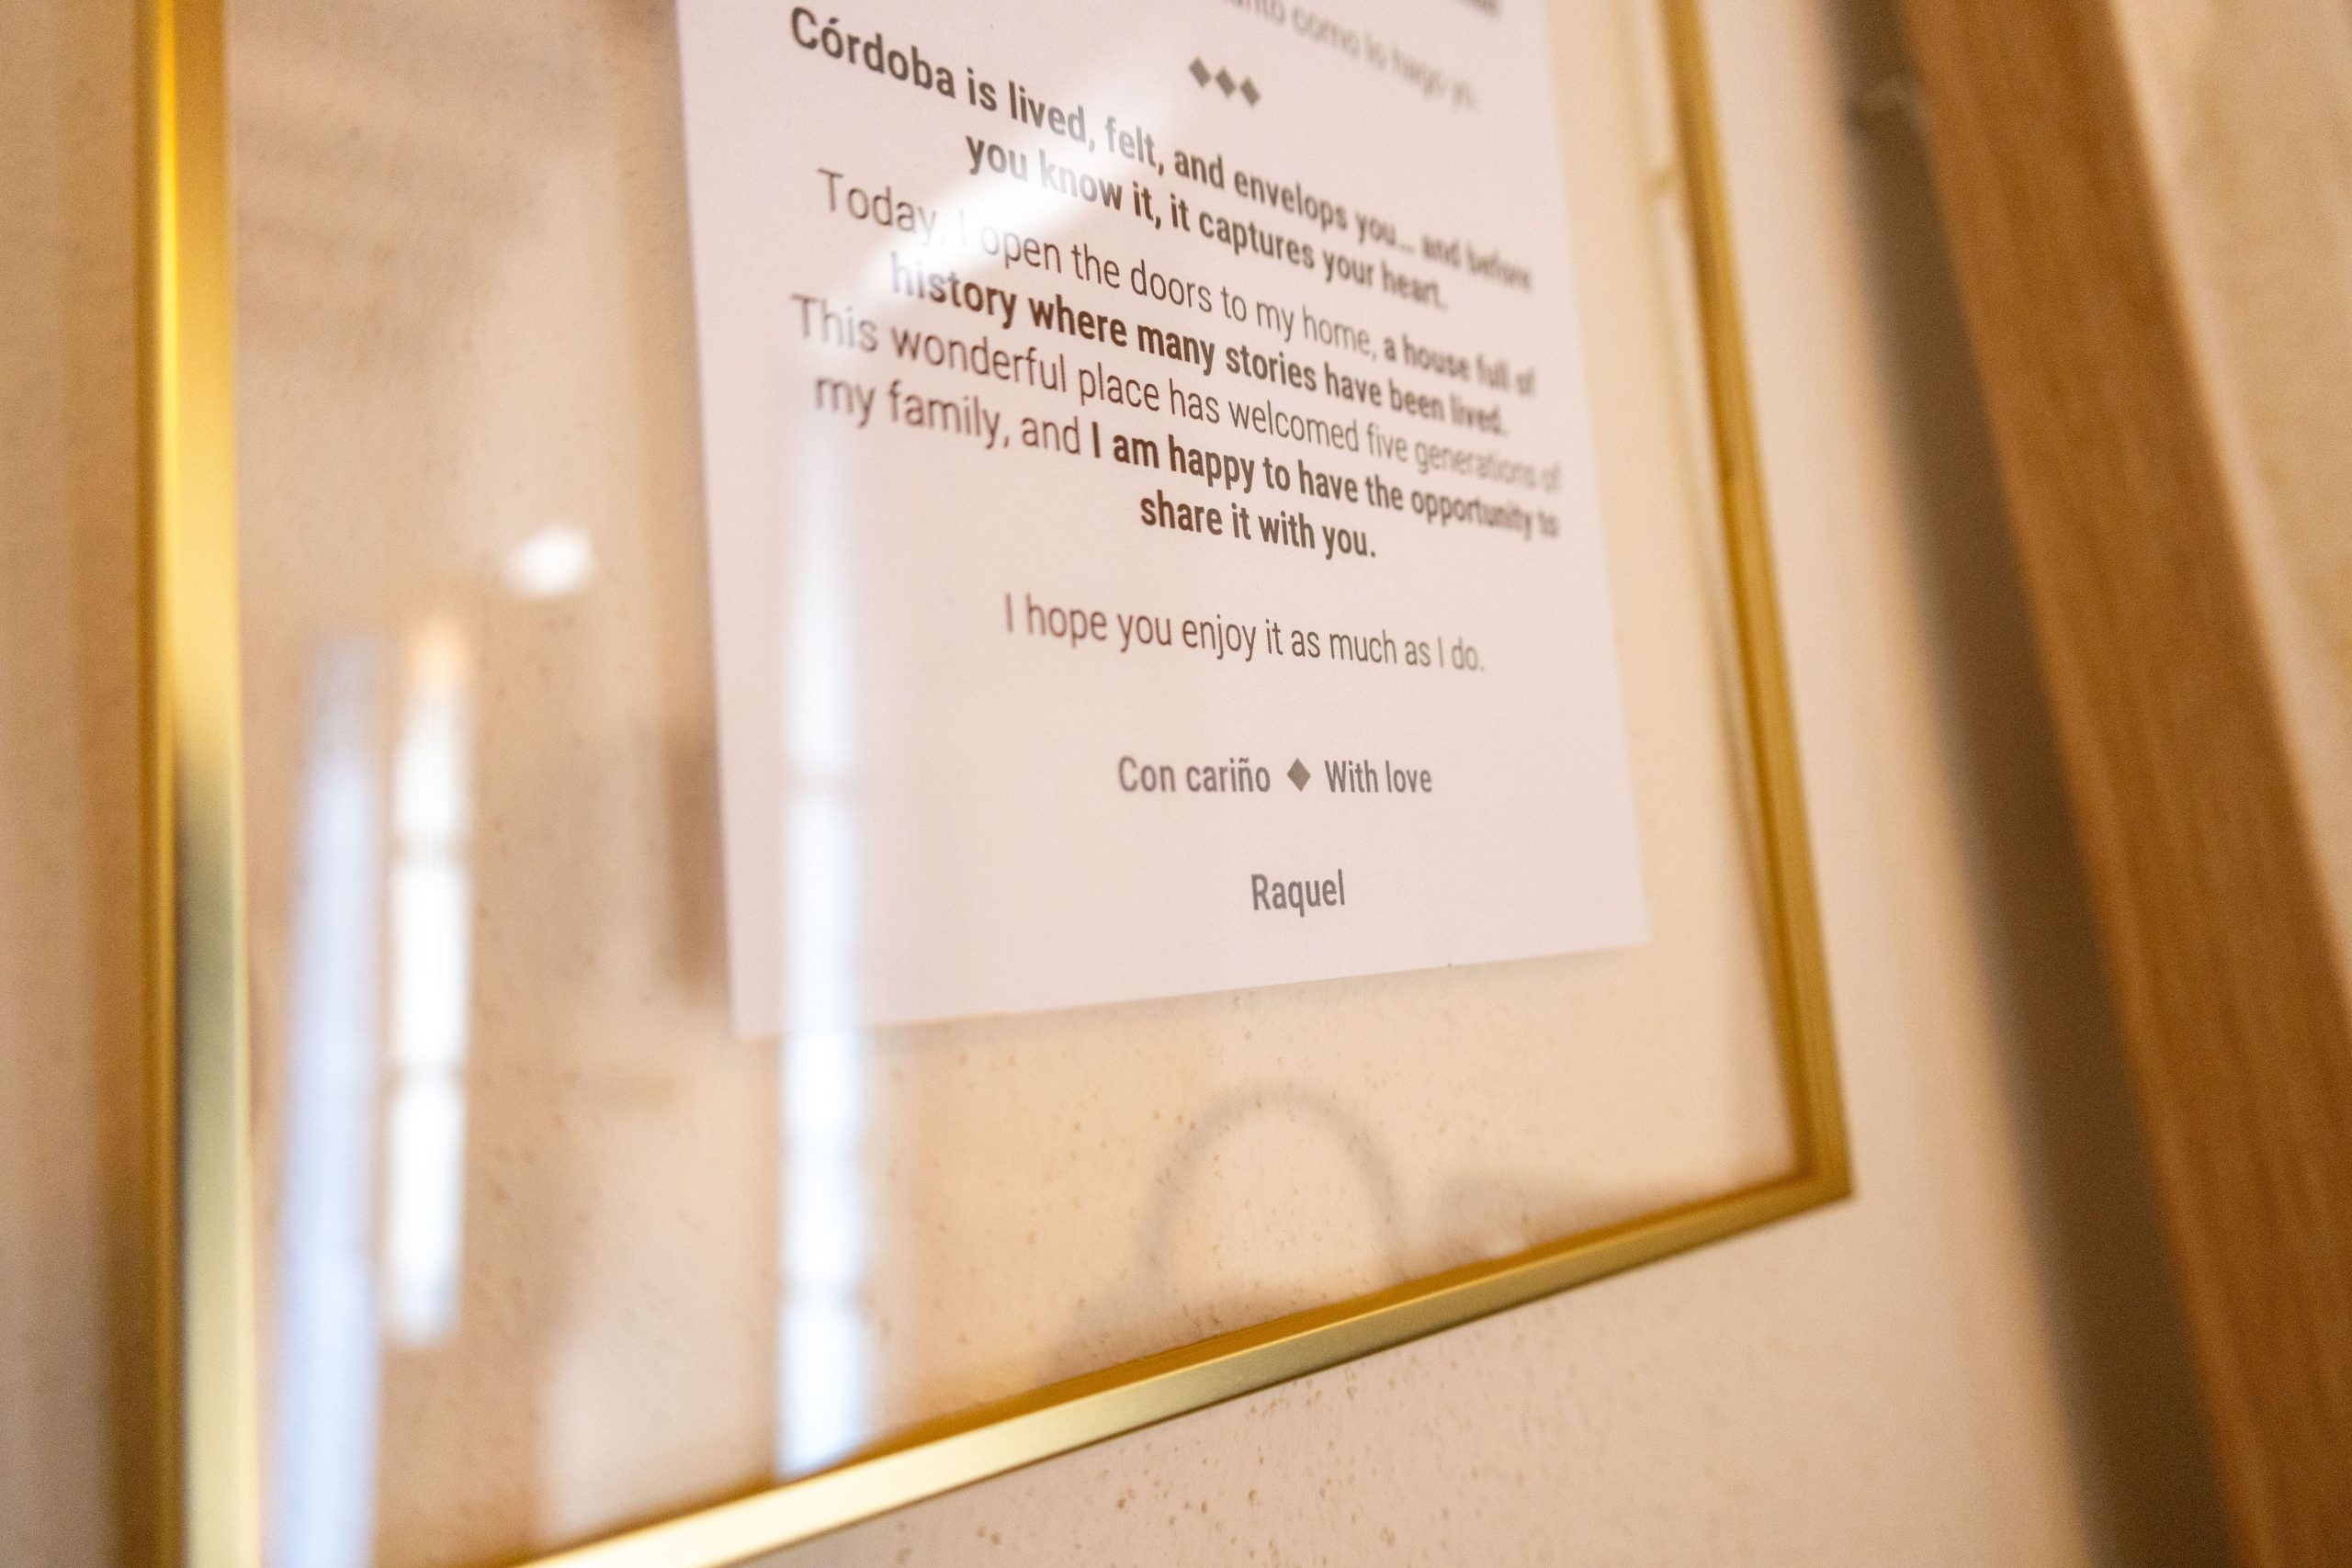 como lo hago yo.
Córdoba is lived, felt, and envelops you... and before
you know it, it captures your heart.
Today, I open the doors to my home, a house full of
history where many stories have been lived.
This wonderful place has welcomed five generations of
my family, and I am happy to have the opportunity to
share it with you.
I hope you enjoy it as much as I do.
Con cariño ♦ With love
Raquel